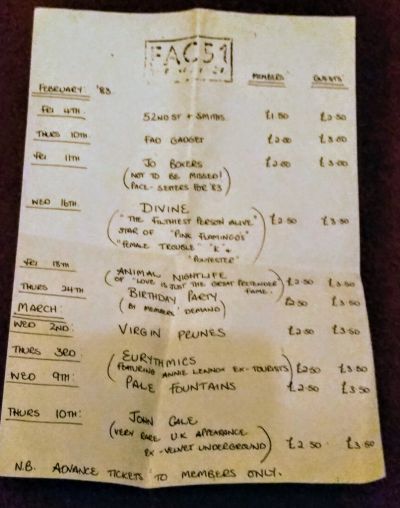 FAC51
MEMBERS GUESTS
FEBRUARY: '83
FRI 4TH. 52ND ST + SMITHS £1.50 £2.50
THURS 10TH FAD GADGET £2.00 £3.00
FRI 11TH JO BOXERS £2.00 £3.00
(NOT TO BE MISSED!
PACE-SETTERS FOR '83)
WED 16TH DIVINE
("THE FILTHIEST PERSON ALIVE" £2.50 £3.50
STAR OF "PINK FLAMINGO'S"
"FEMALE TROUBLE" "&" +
"POLYESTER")
FRI 18TH ANIMAL NIGHTLIFE
(OF "LOVE IS JUST THE GREAT PRETENDER" FAME) £2.50 £3.50
THURS 24TH BIRTHDAY PARTY £2.50 £3.50
(BY MEMBERS' DEMAND)
MARCH:
WED 2ND: VIRGIN PRUNES £2.50 £3.50
THURS 3RD: EURYTHMICS
(FEATURING ANNIE LENNOX EX-TOURISTS) £2.50 £3.50
WED 9TH: PALE FOUNTAINS £2.50 £3.50
THURS 10TH: JOHN CALE
(VERY RARE U.K APPEARANCE
EX-VELVET UNDERGROUND) £2.50 £3.50
N.B. ADVANCE TICKETS TO MEMBERS ONLY.